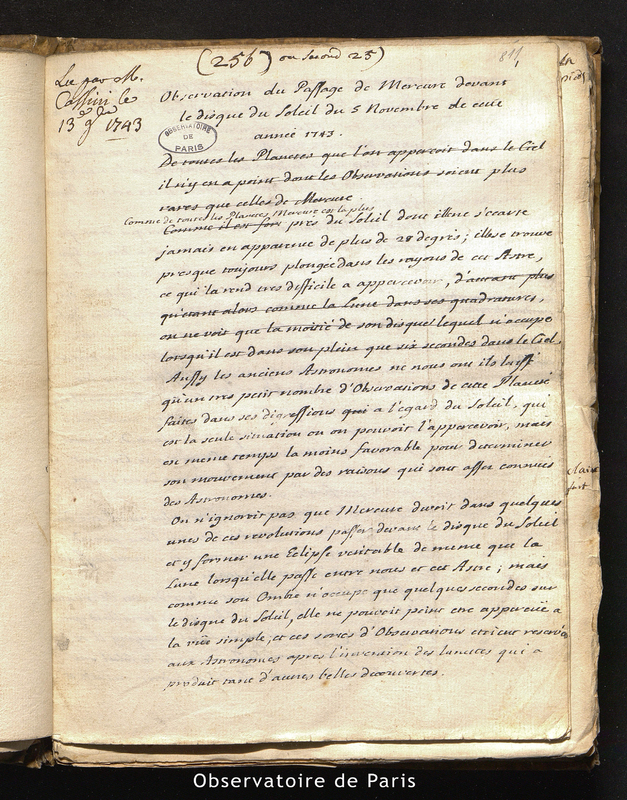 (256) ou second 25)
811
Lu par M.
Cassini le
13 9bre 1743
Observation du Passage de Mercure devant
le disque du Soleil du 5 Novembre de cette
année 1743.
OBSERVATOIRE
DE
PARIS
De toutes les Planetes que l'on apperçoit dans le Ciel
il n'y en a point dont les Observations soient plus
rares que celles de Mercure.
Comme de toutes les Planetes, Mercure est la plus
Comme il est fort près du Soleil dont elle ne s'ecarte
jamais en apparence de plus de 28 degrés; elle se trouve
presque toujours plongée dans les rayons de cet Astre,
ce qui la rend tres difficile a appercevoir, d'autant plus
qu'étant alors comme la Lune dans ses quadratures,
on ne voit que la moitié de son disque lequel n'occupe
lorsqu'il est dans son plein que six secondes dans le Ciel.
Aussy les anciens Astronomes ne nous ont ils laissé
qu'un tres petit nombre d'Observations de cette Planete
faites dans ses digressions qui a l'egard du Soleil, qui
est la seule situation ou on pouvoit l'appercevoir, mais
en meme temps la moins favorable pour determiner
son mouvement par des raisons qui sont assez connues
des Astronomes.
On n'ignoroit pas que Mercure devoit dans quelques
unes de ces revolutions passer devant le disque du Soleil
et y former une Eclipse veritable de meme que la
Lune lorsqu'elle passe entre nous et cet Astre; mais
comme son Ombre n'occupe que quelques secondes sur
le disque du Soleil, elle ne pouvoit point etre apperçue a
la vûe simple, et ces sortes d'Observations etoient reservées
aux Astronomes apres l'invention des lunetes qui a
produit tant d'autres belles decouvertes.
Observatoire de Paris